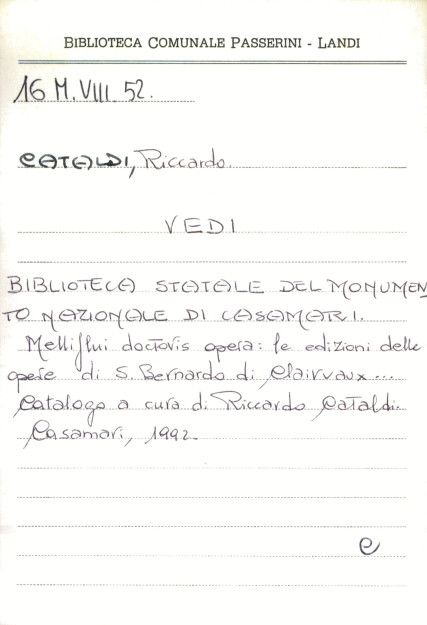 BIBLIOTECA COMUNALE PASSERINI - LANDI
16 M. VIII. 52.
CATALDI, Riccardo.
VEDI
BIBLIOTECA STATALE DEL MONUMEN
TO NAZIONALE DI CASAMARI.
Melliflui doctoris opera: le edizioni delle
opere di S. Bernardo di Clairvaux...
Catalogo a cura di Riccardo Cataldi.
Casamari, 1992.
e